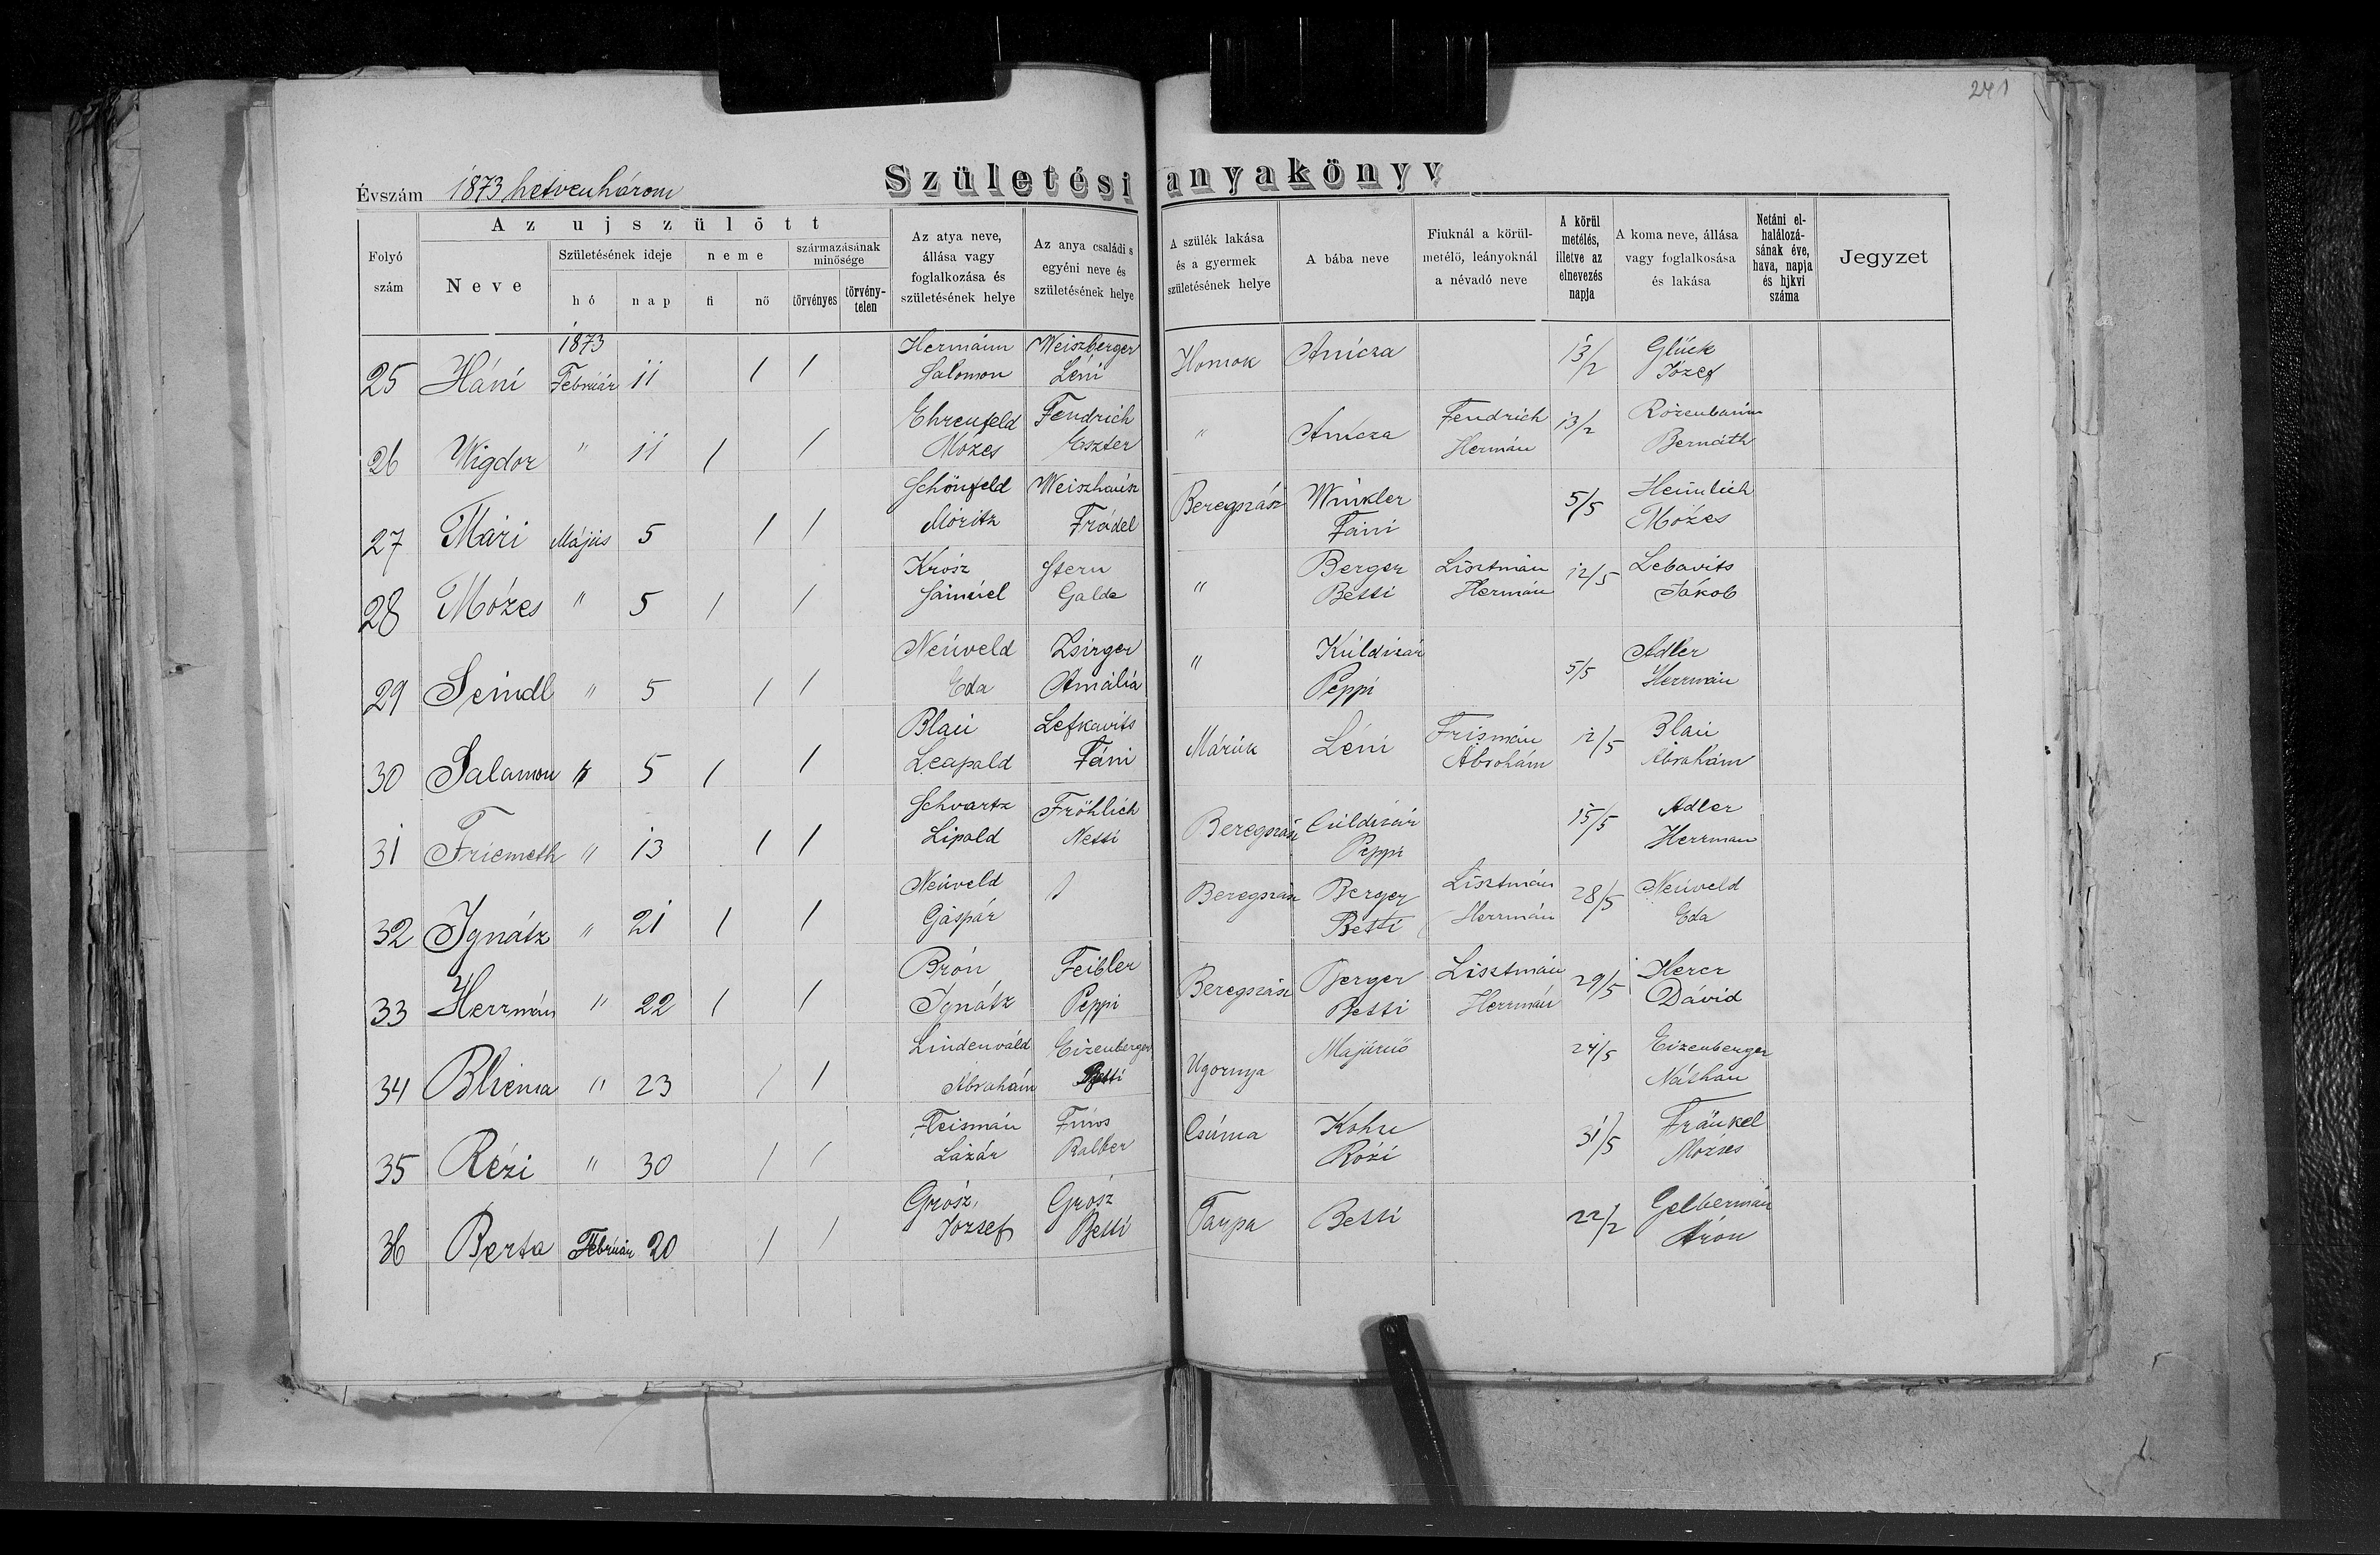 241
Születési anyakönyv
Évszám 1873 hetvenhárom
Folyó szám
Az ujszülött
Neve
Születésének ideje
hó
nap
neme
fi
nő
származásának minősége
törvényes
törvény-telen
Az atya neve, állása vagy foglalkozása és születésének helye
Az anya családi s egyéni neve és születésének helye
A szülék lakása és a gyermek születésének helye
A bába neve
Fiuknál a körül-metélő, leányoknál a névadó neve
A körül metélés, illetve az elnevezés napja
A koma neve, állása vagy foglalkosása és lakása
Netáni el-halálozá-sának éve, hava, napja és hjkvi száma
Jegyzet
1873
25 Háni Február 11 / / Hermann Salomon Weiszberger Léni Homok Anicza 13/2 Glück Józef
26 Wigdor " 11 / / Ehrenfeld Mózes Fendrich Eszter " Anicza Fendrich Hermán 13/2 Rózenbaum Bernáth
27 Mári Május 5 / / Schönfeld Móritz Weiszhausz Frádel Beregszász Winkler Fáni 5/5 Heimlich Mózes
28 Mózes " 5 / / Krósz Sámuel Stern Galde " Berger Betti Lisztmán Hermán 12/5 Lebavits Jákob
29 Seindl " 5 / / Neuveld Eda Zsirger Amália " Küldvizár Peppi 5/5 Adler Herrmán
30 Salamon " 5 / / Blau Leapald Lefkavits Fáni Máruk Léni Frismán Abrahám 12/5 Blau Abrahám
31 Friemeth " 13 / / Schvartz Lipald Fröhlich Netti Beregszász Peppi 15/5 Adler Herrman
32 Ignátz " 21 / / Neuveld Gáspár Beregszász Berger Betti Lisztmán Herrmán 28/5 Neuveld Eda
33 Herrmán " 22 / / Brón Ignátz Feibler Peppi Beregszász Berger Betti Lisztmán Herrmán 29/5 Hercz Dávid
34 Bliema " 23 / / Lindenváld Abrahám Eizenberger Betti Ugornya 24/5 Eizenberger Náthán
35 Rézi " 30 / / Fleismán Lázár Balber Csúma Kohn Rózi 31/5 Fränkel Mózses
36 Berta Február 20 / / Grósz József Grósz Betti Tarpa Betti 22/2 Gelbermán Áron